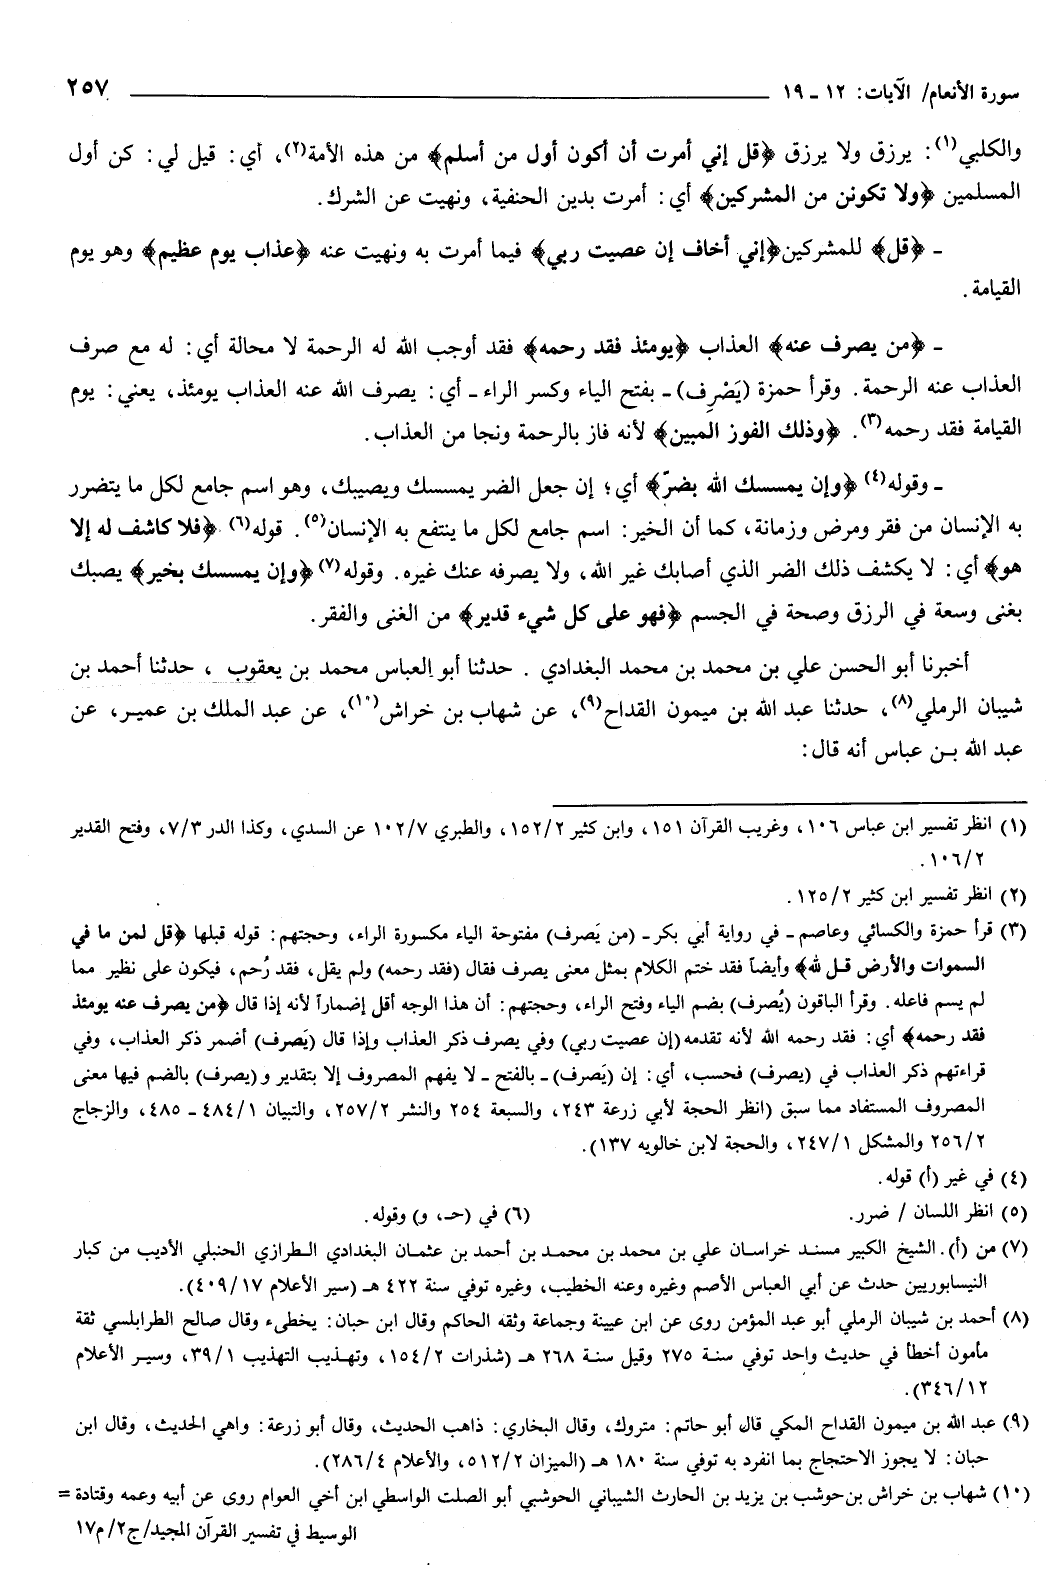 سورة الأنعام/ الآيات: ١٢ ـ ١٩ ٢٥٧
والكلبي(١): يرزق ولا يرزق ﴿قل إني أمرت أن أكون أول من أسلم﴾ من هذه الأمة(٢)، أي: قيل لي: كن أول
المسلمين ﴿ولا تكونن من المشركين﴾ أي: أمرت بدين الحنفية، ونهيت عن الشرك.
ـ ﴿قل﴾ للمشركين﴿إني أخاف إن عصيت ربي﴾ فيما أمرت به ونهيت عنه ﴿عذاب يوم عظيم﴾ وهو يوم
القيامة.
ـ ﴿من يصرف عنه﴾ العذاب ﴿يومئذ فقد رحمه﴾ فقد أوجب الله له الرحمة لا محالة أي: له مع صرف
العذاب عنه الرحمة. وقرأ حمزة (يَصْرِف) ـ بفتح الياء وكسر الراء ـ أي: يصرف الله عنه العذاب يومئذ، يعني: يوم
القيامة فقد رحمه(٣). ﴿وذلك الفوز المبين﴾ لأنه فاز بالرحمة ونجا من العذاب.
ـ وقوله(٤) ﴿وإن يمسسك الله بضرّ﴾ أي؛ إن جعل الضر يمسسك ويصيبك، وهو اسم جامع لكل ما يتضرر
به الإنسان من فقر ومرض وزمانة، كما أن الخير: اسم جامع لكل ما ينتفع به الإنسان(٥). قوله(٦) ﴿فلا كاشف له إلا
هو﴾ أي: لا يكشف ذلك الضر الذي أصابك غير الله، ولا يصرفه عنك غيره. وقوله(٧) ﴿وإن يمسسك بخير﴾ يصبك
بغنى وسعة في الرزق وصحة في الجسم ﴿فهو على كل شيء قدير﴾ من الغنى والفقر.
أخبرنا أبو الحسن علي بن محمد بن محمد البغدادي . حدثنا أبو العباس محمد بن يعقوب ، حدثنا أحمد بن
شيبان الرملي(٨)، حدثنا عبد الله بن ميمون القداح(٩)، عن شهاب بن خراش(١٠)، عن عبد الملك بن عمير، عن
عبد الله بن عباس أنه قال:
(١) انظر تفسير ابن عباس ١٠٦، وغريب القرآن ١٥١، وابن كثير ١٥٢/٢، والطبري ١٠٢/٧ عن السدي، وكذا الدر ٧/٣، وفتح القدير
١٠٦/٢.
(٢) انظر تفسير ابن كثير ١٢٥/٢.
(٣) قرأ حمزة والكسائي وعاصم ـ في رواية أبي بكر ـ (من يَصرف) مفتوحة الياء مكسورة الراء، وحجتهم: قوله قبلها ﴿قل لمن ما في
السموات والأرض قل لله﴾ وأيضاً فقد ختم الكلام بمثل معنى يصرف فقال (فقد رحمه) ولم يقل، فقد رُحم، فيكون على نظير مما
لم يسم فاعله. وقرأ الباقون (يُصرف) بضم الياء وفتح الراء، وحجتهم: أن هذا الوجه أقل إضماراً لأنه إذا قال ﴿من يصرف عنه يومئذ
فقد رحمه﴾ أي: فقد رحمه الله لأنه تقدمه (إن عصيت ربي) وفي يصرف ذكر العذاب وإذا قال (يَصرف) أضمر ذكر العذاب، وفي
قراءتهم ذكر العذاب في (يصرف) فحسب، أي: إن (يَصرف) ـ بالفتح ـ لا يفهم المصروف إلا بتقدير و(يصرف) بالضم فيها معنى
المصروف المستفاد مما سبق (انظر الحجة لأبي زرعة ٢٤٣، والسبعة ٢٥٤ والنشر ٢٥٧/٢، والتبيان ٤٨٤/١ ـ ٤٨٥، والزجاج
٢٥٦/٢ والمشكل ٢٤٧/١، والحجة لابن خالويه ١٣٧).
(٤) في غير (أ) قوله.
(٥) انظر اللسان / ضرر. (٦) في (حـ، و) وقوله.
(٧) من (أ). الشيخ الكبير مسند خراسان علي بن محمد بن محمد بن أحمد بن عثمان البغدادي الطرازي الحنبلي الأديب من كبار
النيسابوريين حدث عن أبي العباس الأصم وغيره وعنه الخطيب، وغيره توفي سنة ٤٢٢ هـ (سير الأعلام ٤٠٩/١٧).
(٨) أحمد بن شيبان الرملي أبو عبد المؤمن روى عن ابن عيينة وجماعة وثقه الحاكم وقال ابن حبان: يخطىء وقال صالح الطرابلسي ثقة
مأمون أخطأ في حديث واحد توفي سنة ٢٧٥ وقيل سنة ٢٦٨ هـ (شذرات ١٥٤/٢، وتهذيب التهذيب ٣٩/١، وسير الأعلام
٣٤٦/١٢).
(٩) عبد الله بن ميمون القداح المكي قال أبو حاتم: متروك، وقال البخاري: ذاهب الحديث، وقال أبو زرعة: واهي الحديث، وقال ابن
حبان: لا يجوز الاحتجاج بما انفرد به توفي سنة ١٨٠ هـ (الميزان ٥١٢/٢، والأعلام ٢٨٦/٤).
(١٠) شهاب بن خراش بن حوشب بن يزيد بن الحارث الشيباني الحوشبي أبو الصلت الواسطي ابن أخي العوام روى عن أبيه وعمه وقتادة =
الوسيط في تفسير القرآن المجيد/ج٢/م١٧